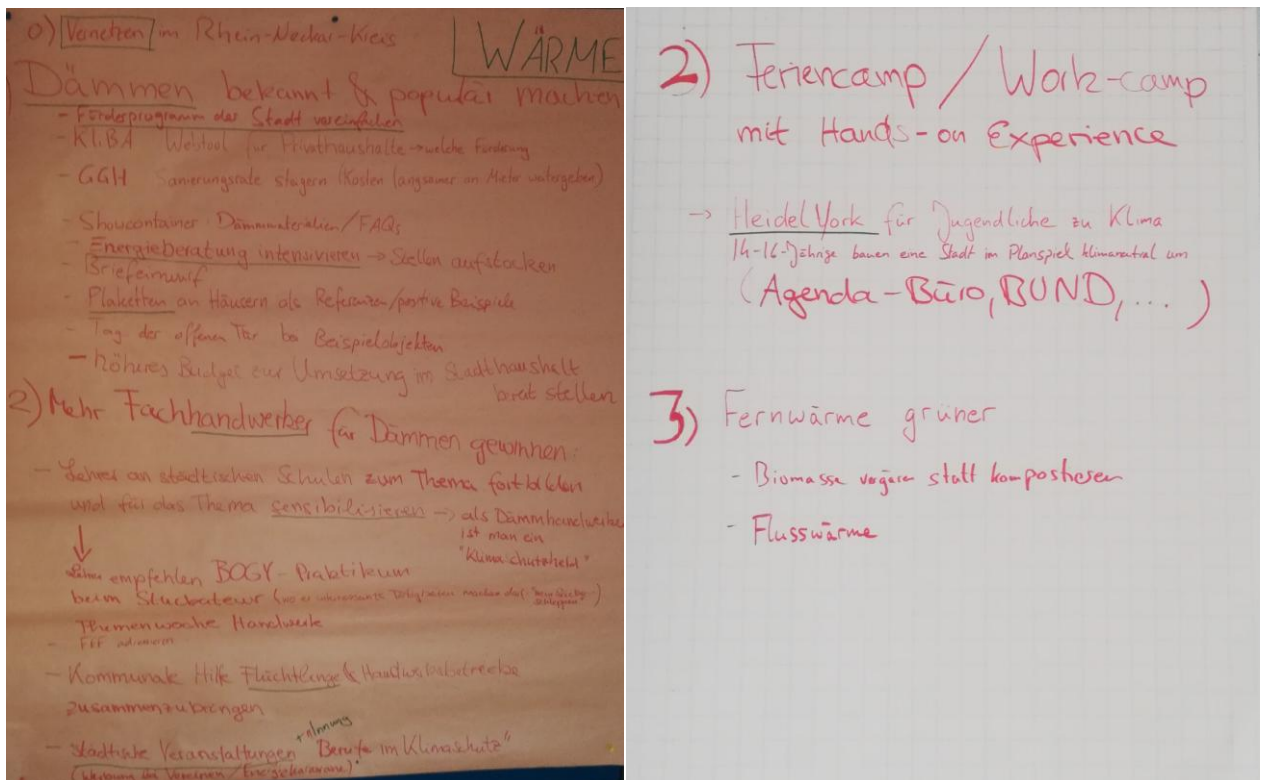 0) Vernetzen im Rhein-Neckar-Kreis
WÄRME
Dämmen bekannt & populär machen
- Förderprogramm der Stadt vereinfachen
- KLIBA Webtool für Privathaushalte → welche Förderung
- GGH Sanierungsrate steigern (Kosten langsamer an Mieter weitergeben)
- Showcontainer Dämmmaterialien/FAQs
- Energieberatung intensivieren → Stellen aufstocken
- Briefeinwurf
- Plaketten an Häusern als Referenzen/positive Beispiele
- Tag der offenen Tür bei Beispielobjekten
- höheres Budget zur Umsetzung im Stadthaushalt
bereit stellen
2) Mehr Fachhandwerker für Dämmen gewinnen:
- Lehrer an städtischen Schulen zum Thema fortbilden
und für das Thema sensibilisieren → als Dämmhandwerker
ist man ein
"Klimaschutzheld"
↓
Lehrer empfehlen BOGY-Praktikum
beim Stuckateur
Themenwoche Handwerk
- FFF
- Kommunale Hilfe Flüchtlinge & Handwerksbetriebe
zusammenzubringen
- Städtische Veranstaltungen "Berufe im Klimaschutz"
2) Feriencamp / Work-camp
mit Hands-on Experience
→ HeidelYork für Jugendliche zu Klima
14-16-Jährige bauen eine Stadt im Planspiel klimaneutral um
(Agenda-Büro, BUND, ... )
3) Fernwärme grüner
- Biomasse vergären statt kompostieren
- Flusswärme